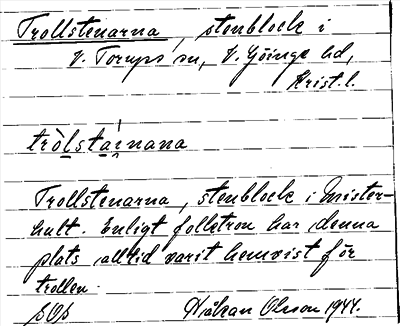 Trollstenarna, stenblock i
V. Torups sn, V. Göinge hd,
Krist. l.
tròlstaínana
Trollstenarna, stenblock i Mister-
hult. Enligt folktron har denna
plats alltid varit hemvist för
trollen.
Håkan Olsson 1944.